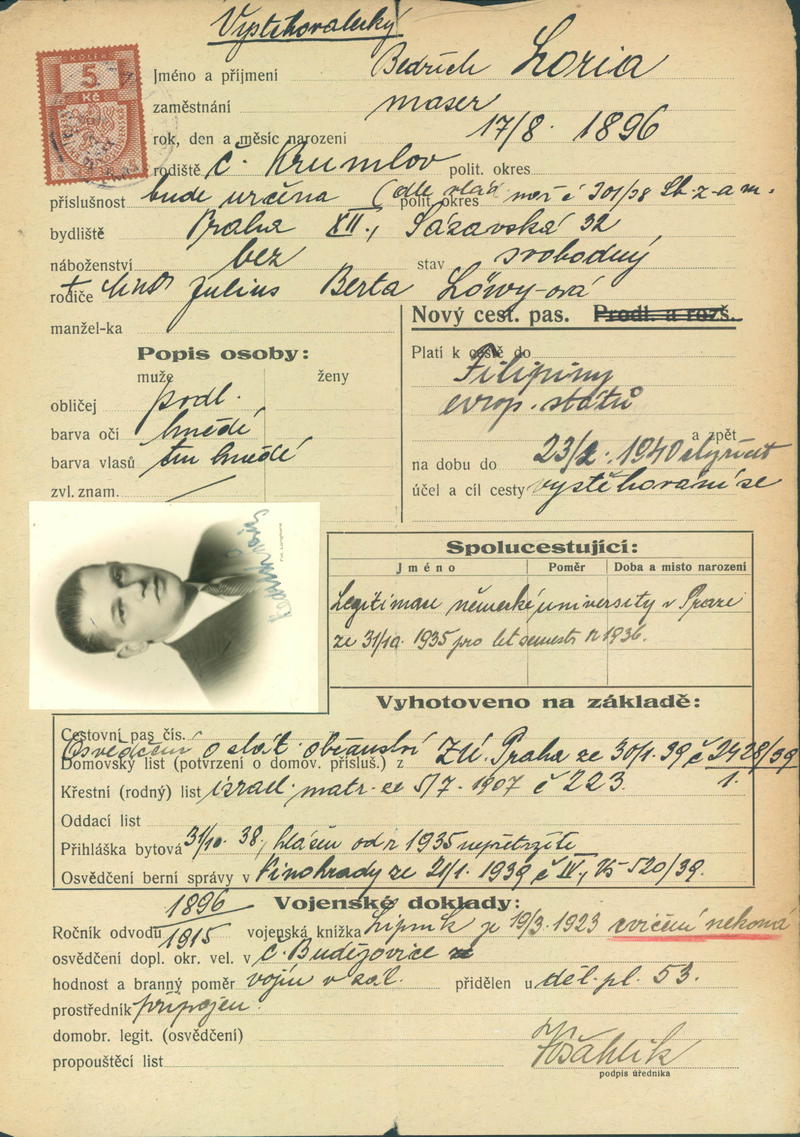 Vystěhovalecký
KOLEK
5
Kč
Jméno a příjmení Bedřich Loria
zaměstnání maser
rok, den a měsíc narození 17/8. 1896
rodiště Č. Krumlov polit. okres
příslušnost bude určena (dle vlád. nař č 301/38 Sb. z. a n.
polit. okres
bydliště Praha XII., Sázavská 32
náboženství bez stav svobodný
rodiče Julius Berta Löwy-ová
manžel-ka
Nový cest. pas. Prodl. a rozš.
Popis osoby:
muže ženy
obličej podl.
barva očí hnědé
barva vlasů tm hnědé
zvl. znam.
Platí k cestě do
Filipiny
evrop. států
a zpět
na dobu do 23/2. 1940
účel a cíl cesty vystěhování se
Spolucestující:
Jméno Poměr Doba a místo narození
Legitimace německé university v Praze
ze 31/10. 1935 pro let semestr r 1936.
Vyhotoveno na základě:
Cestovní pas čís.
Osvědčení o stát občanství ZÚ. Praha ze 30/1. 39 č 2428/39
1.
Domovský list (potvrzení o domov. přísluš.) z
Křestní (rodný) list izrael. matr. ze 5/7. 1907 č 223.
Oddací list
Přihláška bytová 31/10. 38, hlášen od r 1935 nepřetržitě
Osvědčení berní správy v Vinohrady ze 21/1. 1939 č IV, 520/39.
Vojenské doklady:
Ročník odvodu 1896
1915
vojenská knížka Lipník ze 19/3. 1923 cvičení nekoná
osvědčení dopl. okr. vel. v Č. Budějovice
hodnost a branný poměr vojín v zál. přidělen u děl. pl. 53.
prostředník připojen.
domobr. legit. (osvědčení)
propouštěcí list
podpis úředníka